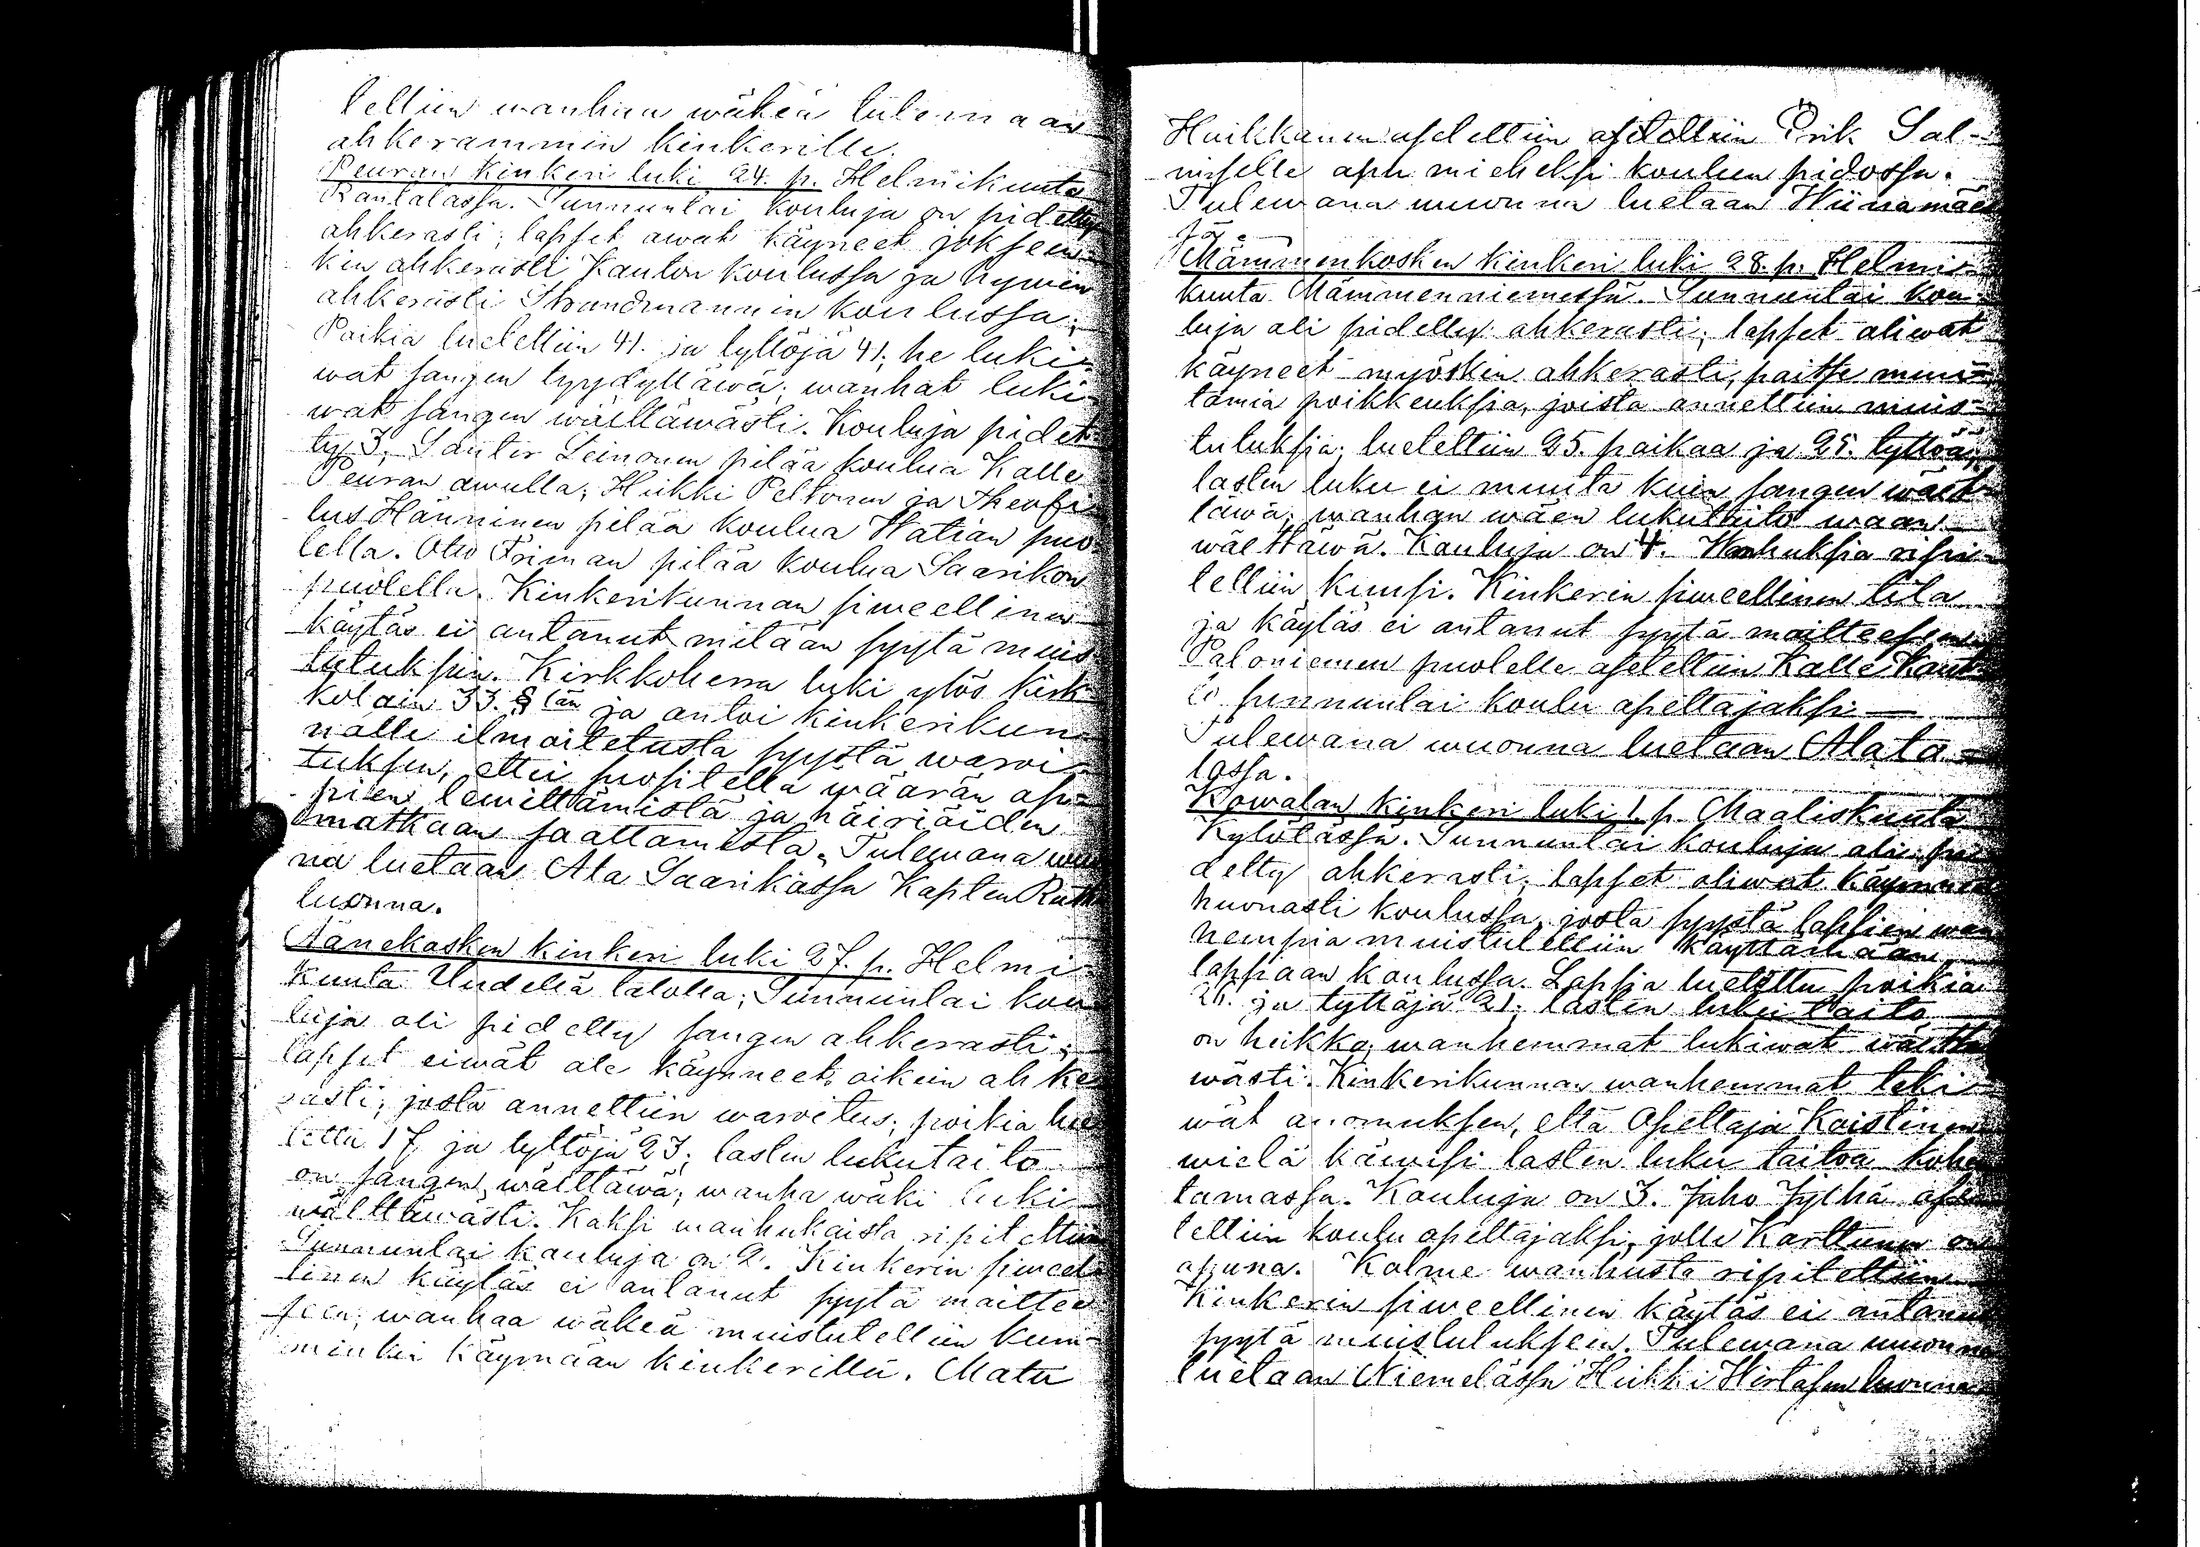 tettiin wanhaa wäkeä tulemaan
ahkerammin kinkerille.
Peuran kinkeri luki 24. p. Helmikuuta
Rantalassa. Sunnuntai kouluja on pidetty
ahkerasti; lapset awat käyneet jokseen-
kin ahkerasti Kantor koulussa ja hywin
ahkerasti Strandmannin koulussa;
Poikia luetettiin 41. ja tyttöjä 41; he luki-
wat sangen tyydyttäwä; wanhat luki-
wat sangen wälttäwästi. Kouluja pidet-
ty 3, Santer Leinonen pitää koulua Kalle
Peuran awulla; Heikki Peltonen ja Theofi-
lus Hänninen pitää koulua Hatian puo-
lella. Otto Friman pitää koulua Saarikon
puolella. Kinkerikunnan siweellinen
käytäs ei antanut mitään syytä muis-
tutuksiin. Kirkkoherra luki ylös Kirk-
kolain 33. § tän ja antoi kinkerikun-
nalle ilmoitetusta syystä waroi-
tuksen, ettei suosittella wäärän op-
pien lewittämistä ja häiriöiden
matkaan saattamista. Tulewana wuon
na luetaan Ala Saarikassa Kapten Ruth
luonna.
Äänekosken kinkeri luki 27. p. Helmi-
kuuta Uudella talolla; Sunnuntai kou-
luja oli pidetty sangen ahkerasti;
lapset eiwät ole käynneet oikein ahke-
rasti; josta annettiin waroitus; poikia lue
tettu 17 ja tyttöjä 23; lasten lukutaito
on sangen wälttäwä; wanha wäki luki
wälttäwästi. Kaksi wanhukaista ripitettiin
Sunnuntai kouluja on 2. Kinkerin siweel-
linen käytäs ei antanut syytä moittee
seen; wanhaa wäkeä muistutettiin kum-
minkin käymään kinkerillä. Matu
Huikkanen asetettiin asetettiin Erik Sal-
miselle apu mieheksi koulun pidossa.
Tulewana wuonna luetaan Hiinamäes
sä.
Mämmenkosken kinkeri luki 28. p. Helmi-
kuuta Mämmenniemessä. Sunnuntai kou-
luja oli pidetty ahkerasti; lapset oliwat
käyneet myöskin ahkerasti, paitse muu-
tamia poikkeuksia, joista annettiin muis-
tutuksia; luetettiin 25. poikaa ja 25. tyttöä;
lasten luku ei muuta kuin sangen wält-
täwä; wanhan wäen lukutaito waan
wälttäwä. Kouluja on 4. Wanhuksia ripi-
tettiin kuusi. Kinkerin siweellinen tila
ja käytäs ei antanut syytä moitteesen.
Paloniemen puolelle asetettiin Kalle Kaut-
to sunnuntai koulu opettajaksi
Tulewana wuonna luetaan Alata-
lossa.
Kowalan kinkeri luki 1. p. Maaliskuuta
Kylölässä. Sunnuntai kouluja oli pi-
detty ahkerasti, lapset oliwat käynneet
huonasti koulussa, josta syystä lapsien wan
hempia muistutettiin käyttämään
lapsiaan koulussa. Lapsia luetettu poikia
21. ja tyttöjä 21; lasten luku taito
on heikko; wanhemmat lukiwat wälttä
wästi. Kinkerikunnan wanhemmat teki-
wät anomuksen, että Opettaja Koistinen
wielä käwisi lasten luku taitoa kohen
tamassa. Kouluja on 3. Juho Jylhä ase-
tettiin koulu opettajaksi, jolle Karttunen on
apuna. Kolme wanhusta ripitettiin
Kinkerin siweellinen käytäs ei antanut
syytä muistutukseen. Tulewana wuonna
luetaan Niemelässä Heikki Hirtasen luonna